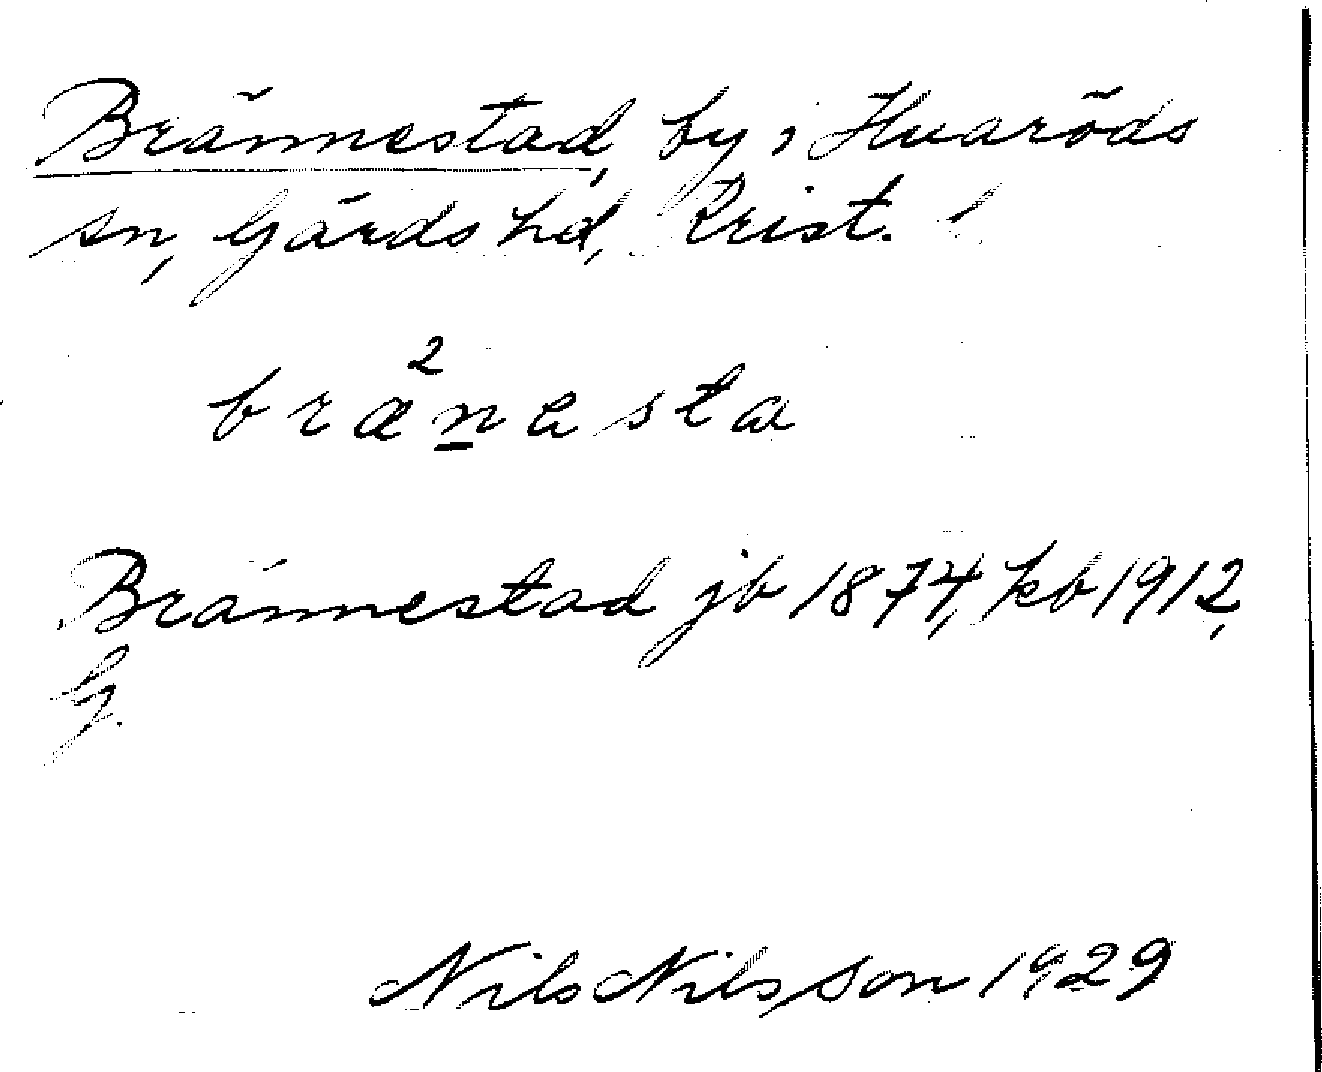 Brännestad, by i Huaröds
sn, Gärds hd, Krist. l
2
brænesta
Brännestad jb 1874, kb 1912,
G.
Nils Nilsson 1929